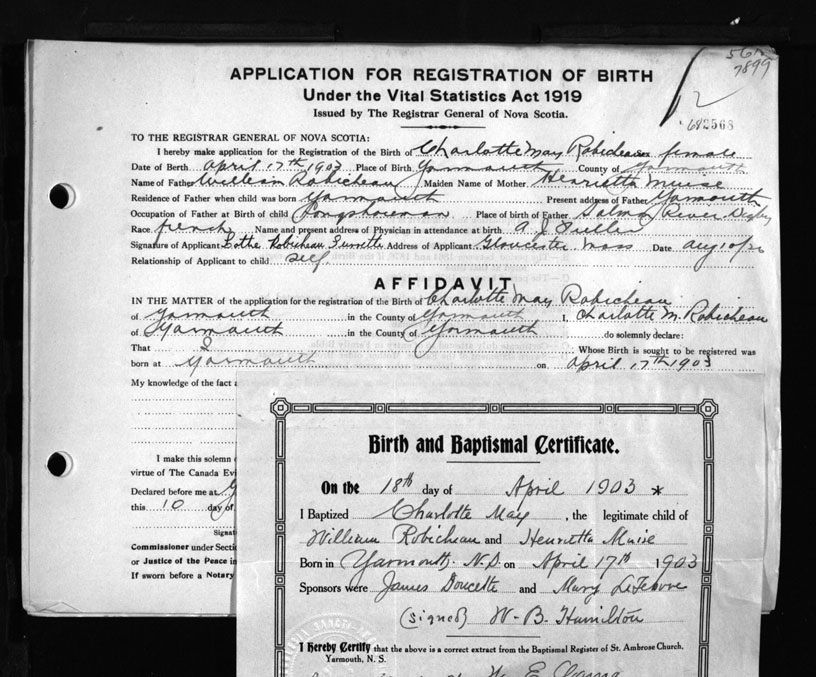 7899
2
682568
APPLICATION FOR REGISTRATION OF BIRTH
Under the Vital Statistics Act 1919
Issued by The Registrar General of Nova Scotia.
TO THE REGISTRAR GENERAL OF NOVA SCOTIA:
I hereby make application for the Registration of the Birth of Charlotte May Robicheau sex female
Date of Berth april 17th 1903 Place of Birth Yarmouth County of Yarmouth
Name of Father William Robicheau Maiden Name of Mother Henrietta Muise
Residence of Father when child was born Yarmouth Present address of Father Yarmouth
Occupation of Father at Birth of child Longshoreman Place of birth of Father Salmon River Digby
Race french Name and present address of Physician in attendance at birth a. J. Fuller
Signature of Applicant Robicheau Address of Applicant Gloucester Mass Date aug 10/
Relationship of Applicant to child self
AFFIDAVIT
IN THE MATTER of the application for the registration of the Birth of Charlotte May Robicheau
of Yarmouth in the County of Yarmouth I, Charlotte M. Robicheau
of Yarmouth in the County of Yarmouth do solemnly declare:
That I Whose Birth is sought to be registered was
born at Yarmouth on april 17th 1903
My knowledge of the fact a
I make this solemn
virtue of The Canada Evi
Declared before me at Y
this 10 day of
Signat
Commissioner under Secti
or Justice of the Peace in
If sworn before a Notary
Birth and Baptismal Certificate.
On the 18th day of April 1903 *
I Baptized Charlotte May, the legitimate child of
William Robicheau and Henrietta Muise
Born in Yarmouth, N.S. on April 17th 1903
Sponsors were James Doucette and Mary LeFebvre
(signed) W. B. Hamilton
I Hereby Certify that the above is a correct extract from the Baptismal Register of St. Ambrose Church,
Yarmouth, N. S.